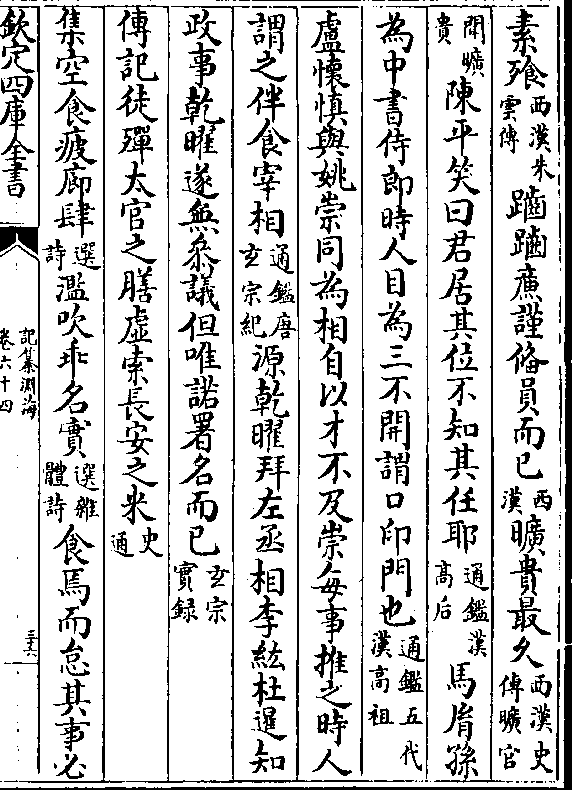 素飱西漢朱雲傳齪齪㢘謹俻員而已西漢曠貴最久西漢史傳曠官
閒曠貴陳平笑曰君居其位不知其任耶通鑑漢高后馬𦙍孫
為中書侍郎時人目為三不開謂口印門也通鑑五代漢高祖
盧懷慎與姚崇同為相自以才不及崇每事推之時人
謂之伴食宰相通鑑唐玄宗紀源乾曜拜左丞相李紘杜暹知
政事乾曜遂無叅議但唯諾署名而已玄宗實録
傳記徒殫太官之膳虛索長安之米史通
集空食疲廊肆選詩濫吹乖名實選雜體詩食焉而怠其事必
欽定四庫全書
記纂淵海
卷六十四
三十六